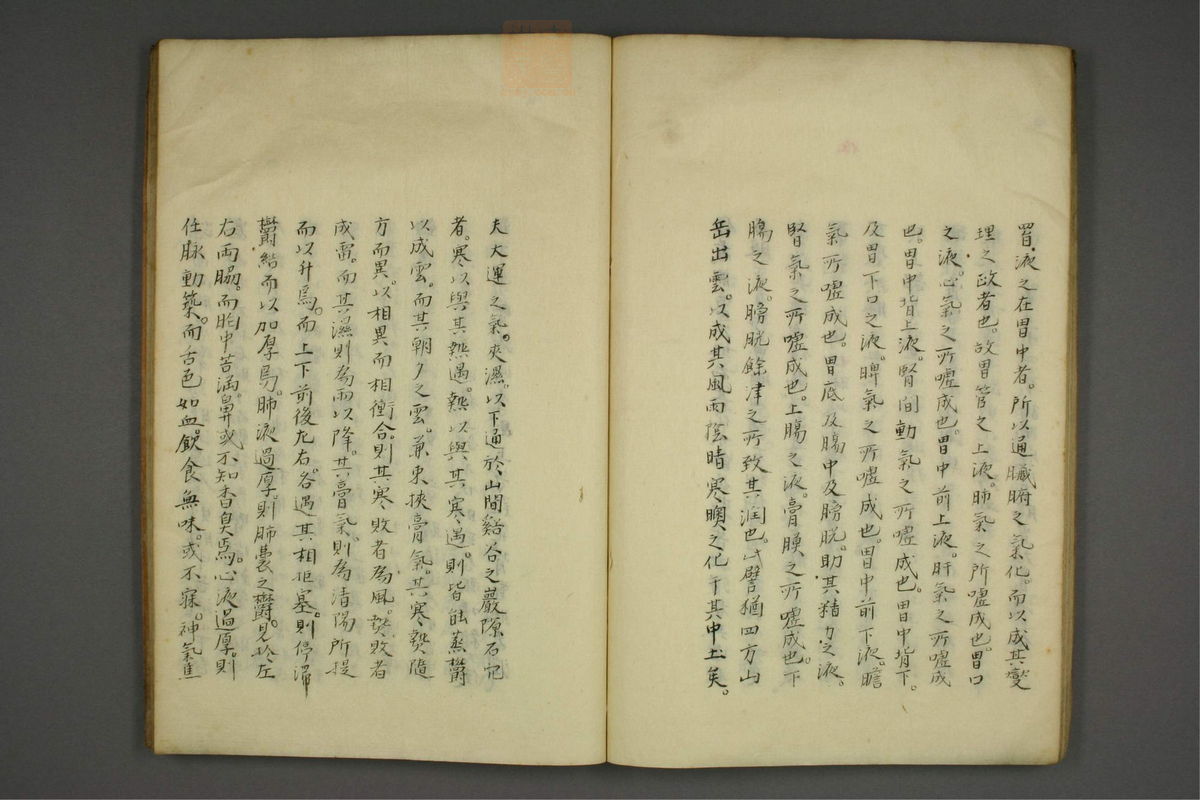 胃液之在胃中者。所以通臟腑之氣化。而以成其變
理之政者也。故胃管之上液。肺氣之所嘘成也。胃口
之液。心氣之所嘘成也。胃中前上液。肝氣之所嘘成
也。胃中背上液。腎間動氣之所嘘成也。胃中背下。
及胃下口之液。脾氣之所嘘成也。胃中前下液。膽
氣所嘘成也。胃底及腸中及膀胱。助其精力之液。
腎氣之所嘘成也。上腸之液。膏膜之所嘘成也。下
腸之液。膀胱餘津之所致其潤也。此譬猶四方山
岳出雲。以成其風雨陰晴寒暖之化于其中土矣。
夫大運之氣。夾濕。以下通於山間谿谷之巖隙石
者。寒以與其熱遇。熱以與其寒遇。則皆能蒸鬱
以成雲。而其朝夕之雲。兼束挾膏氣。其寒熱隨
方而異。以相異而相衝合。則其寒敗者為風。熱敗者
成雷。而其濕則為雨以降。其膏氣。則為清陽所提
而以升焉。而上下前後左右。各遇其相拒塞。則停滯
鬱結而以加厚焉。肺液過厚。則肺囊之鬱。見於左
右兩脇。而胸中苦滿。鼻或不知香臭焉。心液過厚。則
任脉動築。而舌色如血。飲食無味。或不寐。神氣